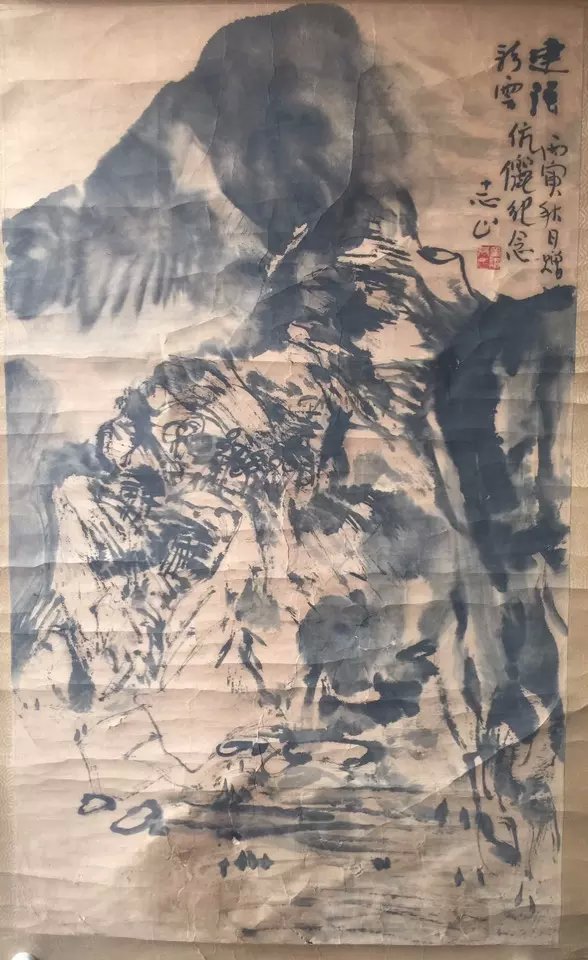 建 丙寅秋日贈
彩雲 伉儷紀念
志山